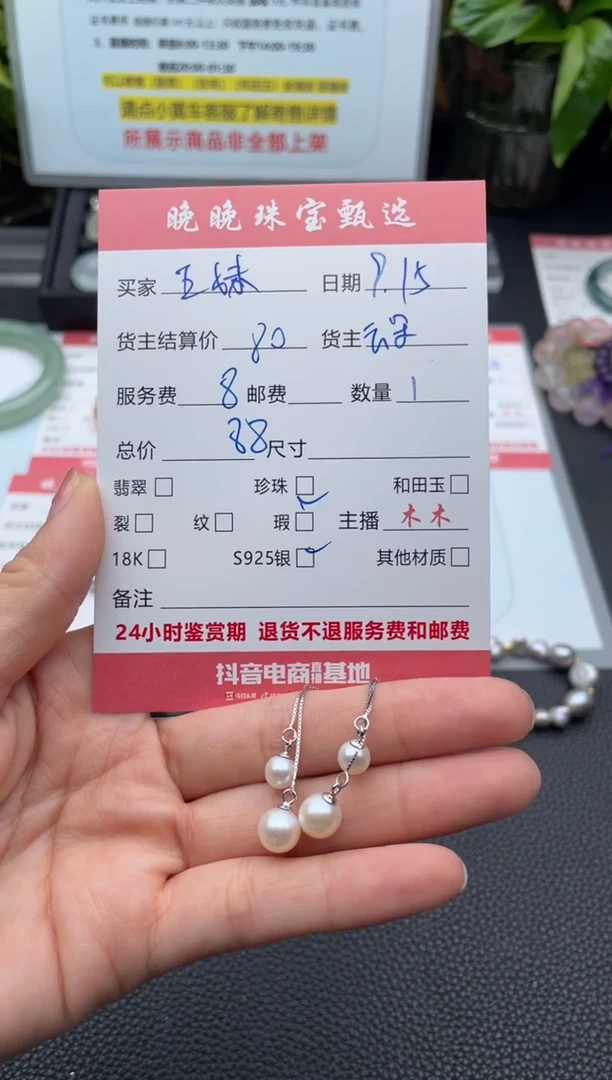 请点小黄车客服了解寄售详情
所展示商品非全部上架
晚晚珠宝甄选
买家 五妹 日期 9.15
货主结算价 80 货主
服务费 8 邮费 数量 1
总价 88 尺寸
翡翠 珍珠 和田玉
裂 纹 瑕 主播 木木
18K S925银 其他材质
备注
24小时鉴赏期 退货不退服务费和邮费
抖音电商直播基地